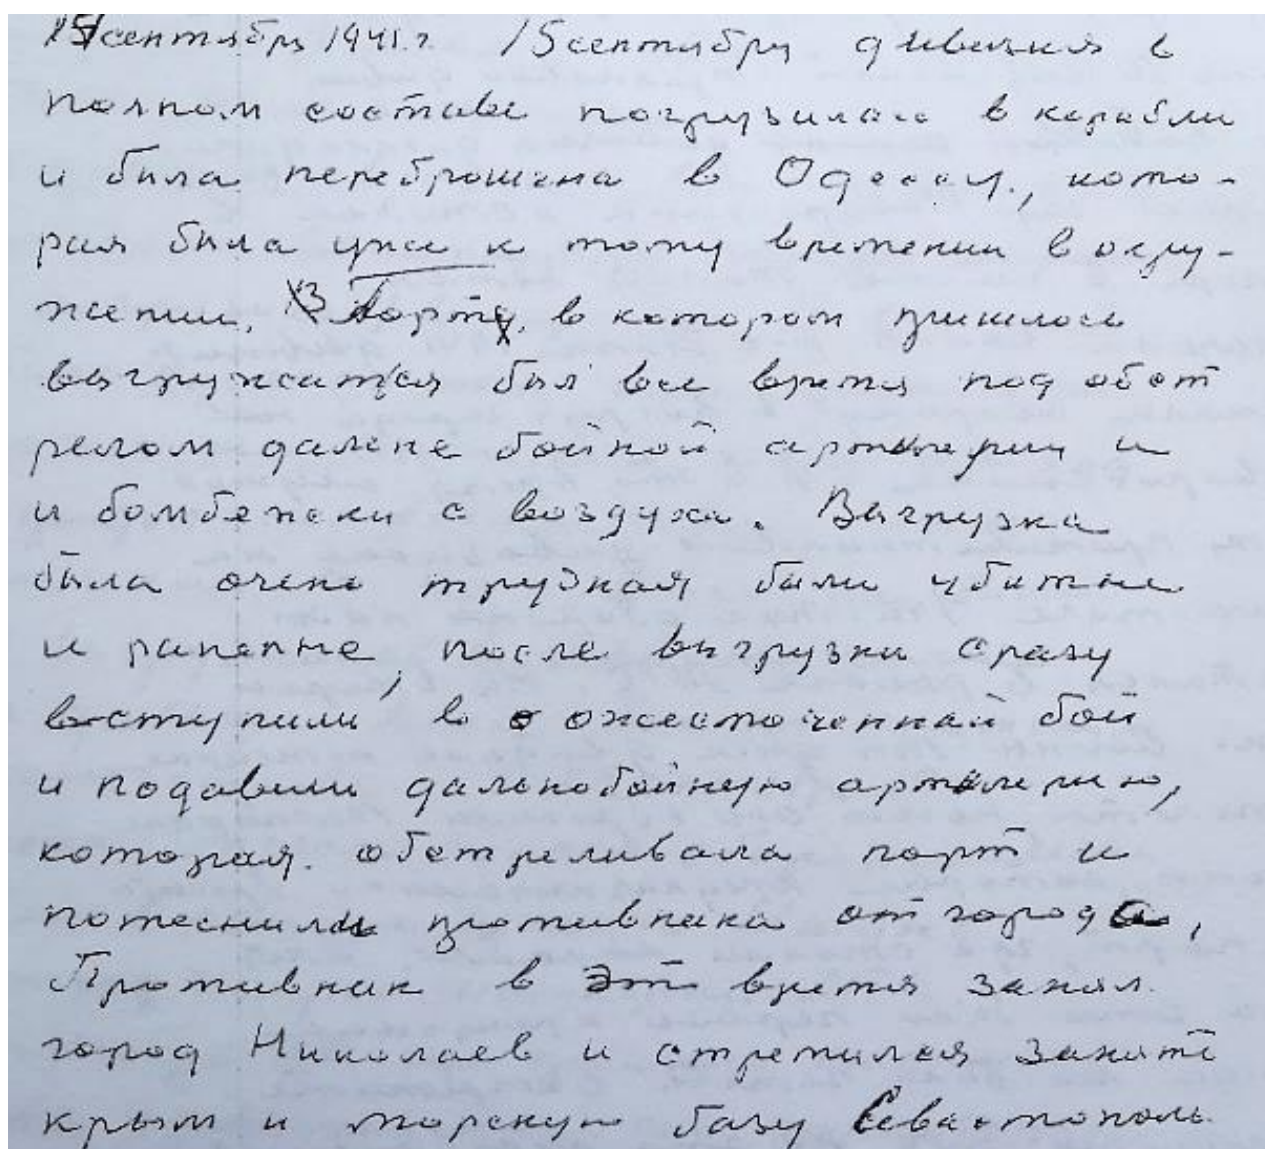 15 сентябрь 1941 г. 15 сентябру дивизия в
полном составе погрузилась в корабли
и была переброшена в Одессу, кото-
рая была уже к тому времени в окру-
жении. Порт, в котором пришлось
выгружатся был все время под обст
релом далне бойной артилерии и
и бомбежки с воздуха. Выгрузка
была очень трудная были убитые
и раненые, после выгрузки сразу
вступили в ожесточенный бой
и подавили дальнобойную артилерию,
которая. обстреливала порт и
потеснили противника от города,
Противник в эт время занял
город Николаев и стремился занять
крым и морскую базу Севастополь